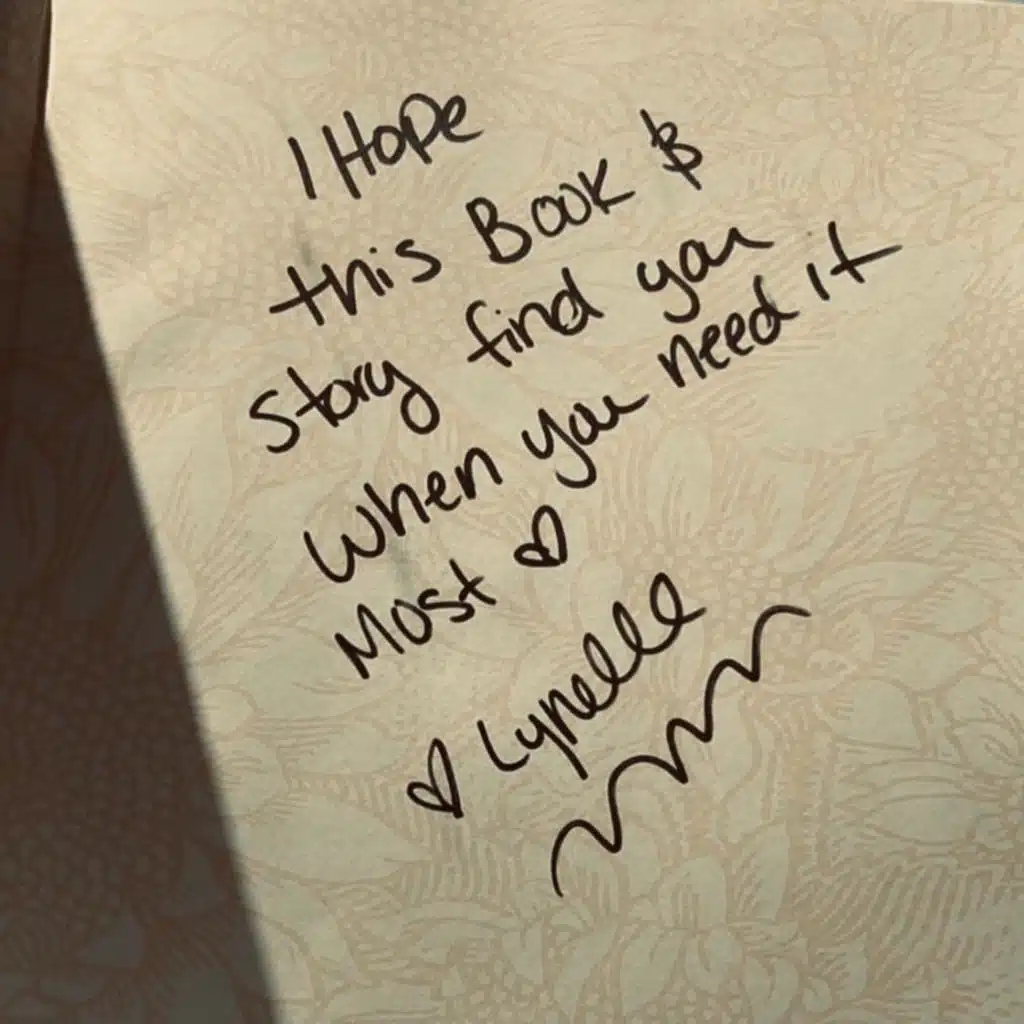 I Hope
this Book &
Story find you
When you need it
Most ♡
♡ Lynelle